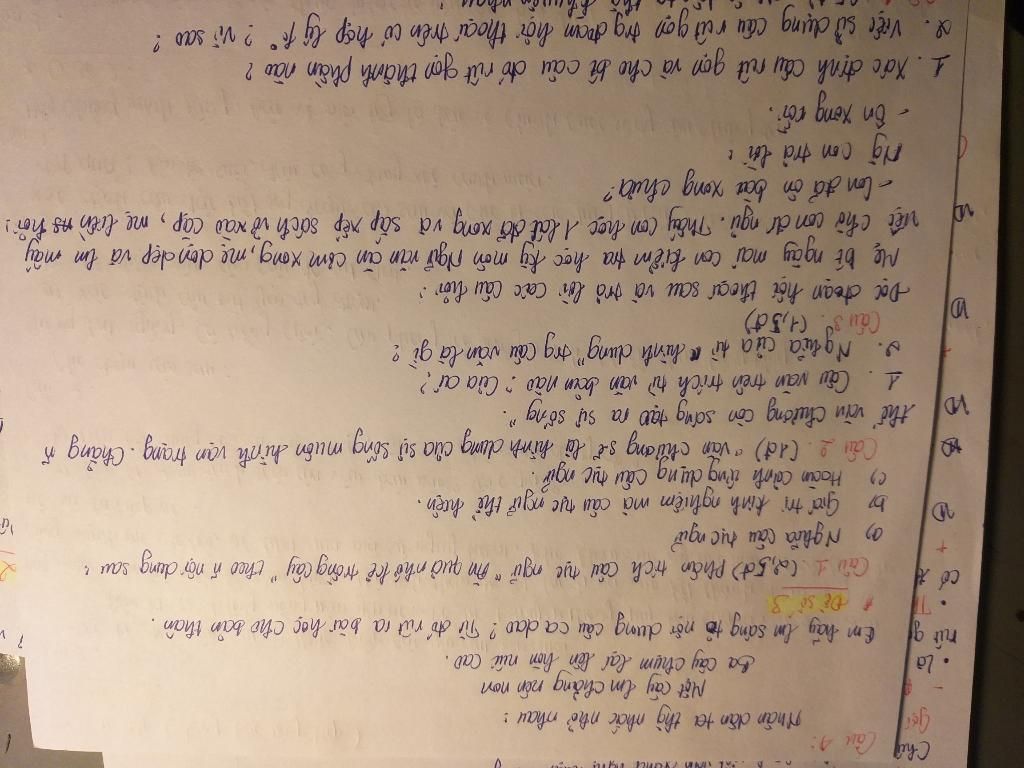 Câu 4:
Nhân dân ta thg nhắc nhở nhau:
Một cây lm chẳng nên non
Ba cây chụm lại lên hòn núi cao.
Em hãy lm sáng tỏ nội dung câu ca dao? Từ đó rút ra bài học cho bản thân.
Đề số 3
Câu 1 (2,5đ) Phân tích câu tục ngữ "Ăn quả nhớ kẻ trồng cây" theo n~ nội dung sau:
a) Nghĩa câu tục ngữ
b) Giá trị kinh nghiệm mà câu tục ngữ thể hiện.
c) Hoàn cảnh ứng dụng câu tục ngữ.
Câu 2. (1đ) "Văn chương sẽ là hình dung của sự sống muôn hình vạn trạng. Chẳng n~
thế văn chương còn sáng tạo ra sự sống".
1. Câu văn trên trích từ văn bản nào? Của ai?
2. Nghĩa của từ "hình dung" trg câu văn là gì?
Câu 3. (1,5đ)
Đọc đoạn hội thoại sau và trả lời các câu hỏi:
Mẹ bt ngày mai con kiểm tra học kỳ môn Ngữ văn ăn cơm xong, mẹ dọn dẹp và lm mấy
việc chờ con đi ngủ. Thấy con học 1 lát đã xong và sắp xếp sách vở vào cặp, mẹ liền hỏi:
- Con đã ôn bài xong chưa?
Ng con trả lời:
- Ôn xong rồi.
1. Xác định câu rút gọn và cho bt câu đó rút gọn thành phần nào?
2. Việc sử dụng câu rút gọn trg đoạn hội thoại trên có hợp lý k°? Vì sao?